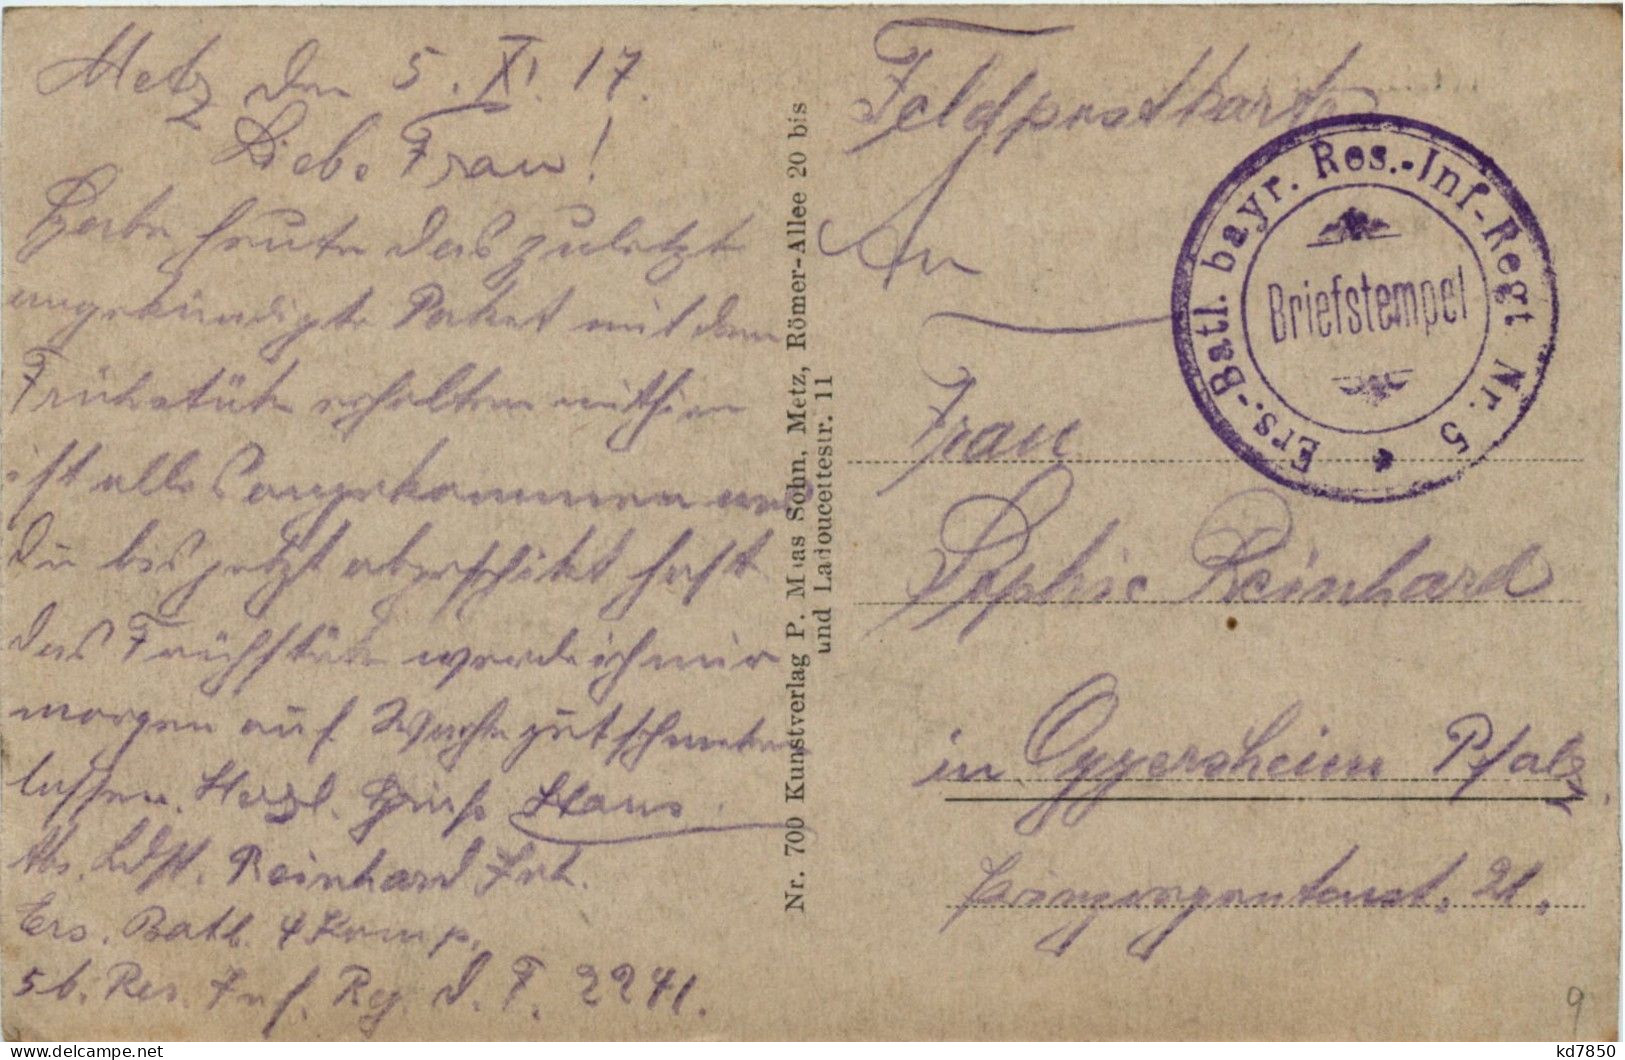 Metz den 5. XI. 17.
Liebe Frau!
Habe heute das zuletzt
angekündigte Paket mit dem
Frühstük erhalten mithin
ist alles angekommen was
Du bis jetzt abgeschikt hast
das Frühstük werde ich mir
morgen auf Wache gut schmeken
lassen. Herzl. Gruß Hans.
Abs. Ldst. Reinhard Joh.
Ers. Batl. 4 Komp.
5 b. Res. Inf. Reg. D. F. 2241.
Nr. 700 Kunstverlag P. Maas Sohn, Metz, Römer-Allee 20 bis
und Ladoucettestr. 11
Feldpostkarte
An
Ers.-Batl. bayr. Res.-Inf-Regt Nr. 5
Briefstempel
Frau
Sophie Reinhard
in Oggersheim Pfalz.
21.
9
kd7850